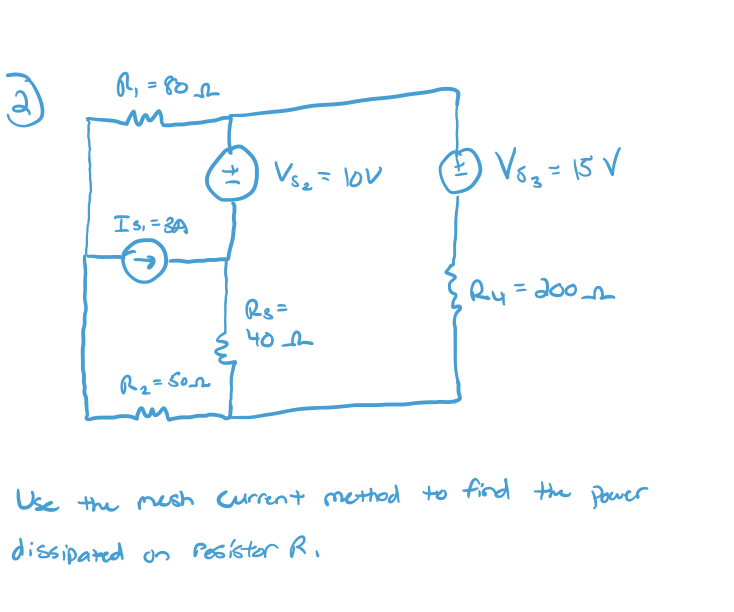 2
R₁ = 80 Ω
Vs₂ = 10V
Vs₃ = 15 V
Is₁ = 3A
R₃ =
40 Ω
R₄ = 200 Ω
R₂ = 50 Ω
Use the mesh current method to find the power
dissipated on resistor R₁